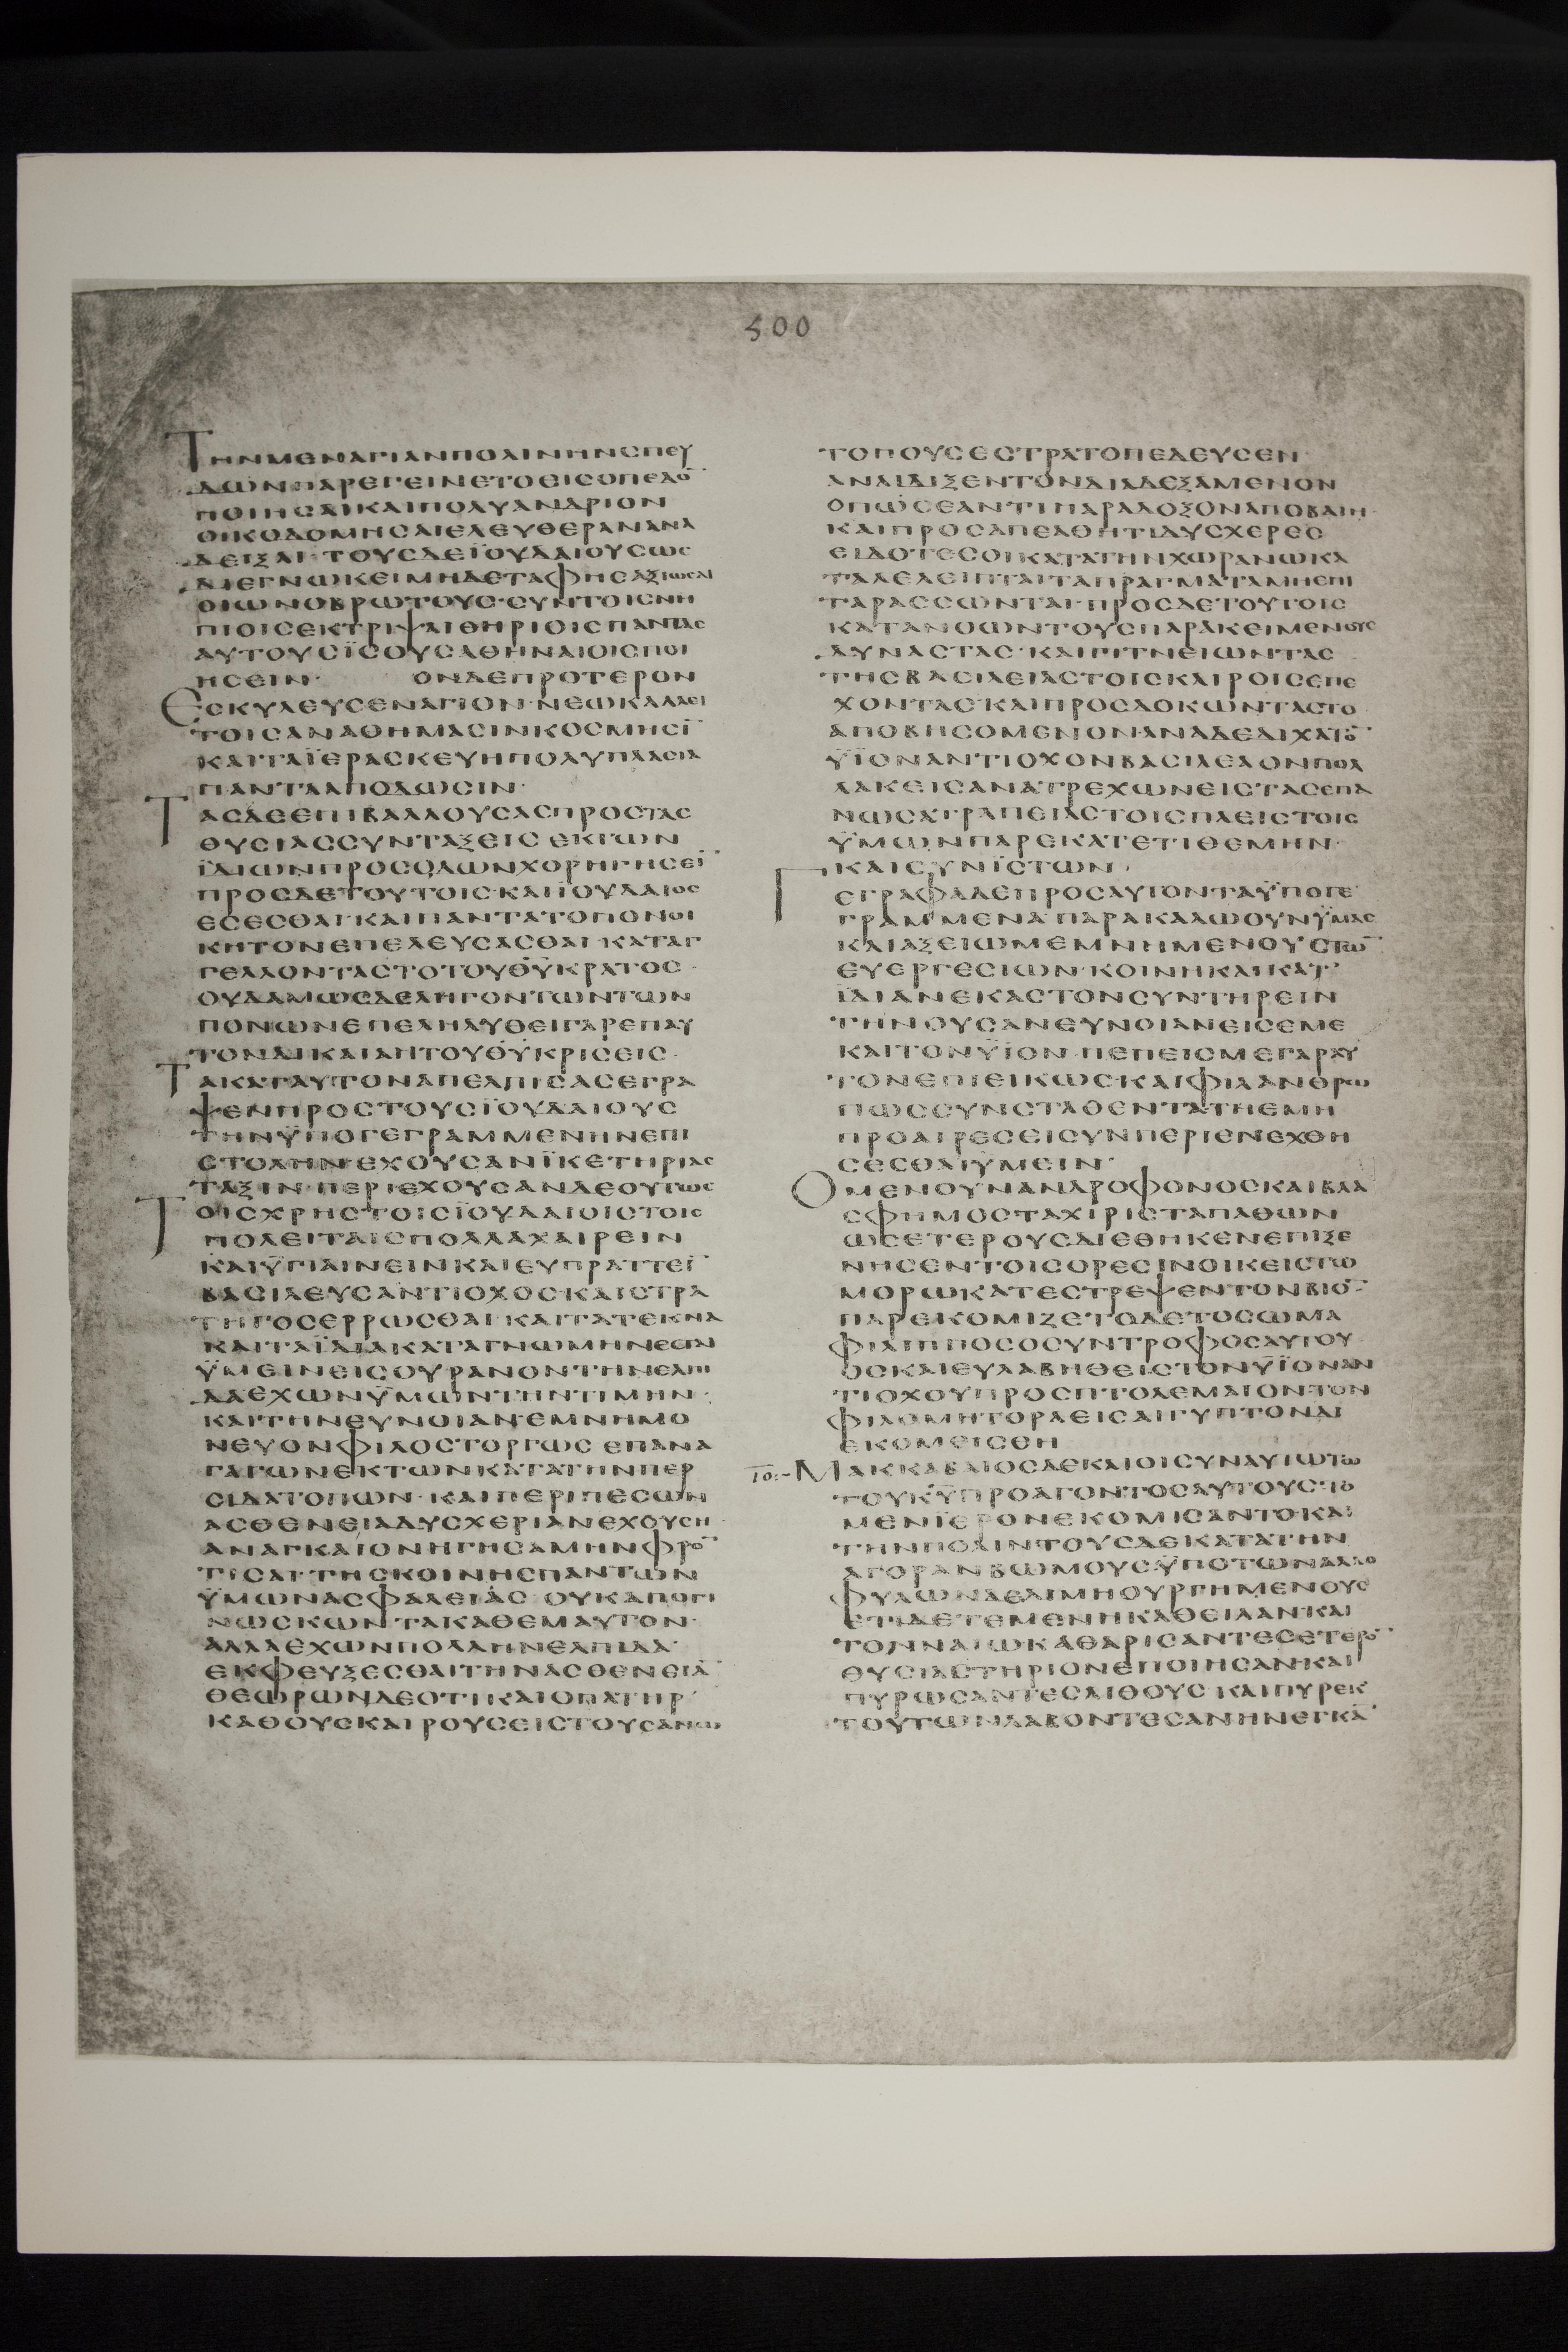 500
ΤΗΝΜΕΝΑΓΙΑΝΠΟΛΙΝΗΝϹΠΕΥ
ΔΩΝΠΑΡΕΓΕΙΝΕΤΟΕΙϹΟΠΕΔΟ̅
ΠΟΙΗϹΑΙΚΑΙΠΟΛΥΑΝΔΡΙΟΝ
ΟΙΚΟΔΟΜΗϹΑΙΕΛΕΥΘΕΡΑΝΑΝΑ
ΔΕΙΞΑΙ·ΤΟΥϹΔΕΪΟΥΔΑΙΟΥϹΟΥϹ
ΔΙΕΓΝΩΚΕΙΜΗΔΕΤΑΦΗϹΑΞΙΩϹΑΙ
ΟΙΩΝΟΒΡΩΤΟΥϹ·ϹΥΝΤΟΙϹΝΗ
ΠΙΟΙϹΕΚΤΡΙΨΑΙΘΗΡΙΟΙϹΠΑΝΤΑϹ
ΑΥΤΟΥϹΪϹΟΥϹΑΘΗΝΑΙΟΙϹΠΟΙ
ΗϹΕΙΝ· ΟΝΔΕΠΡΟΤΕΡΟΝ
ΕϹΚΥΛΕΥϹΕΝΑΓΙΟΝ·ΝΕΩΚΑΛΛΕΙ
ΤΟΙϹΑΝΑΘΗΜΑϹΙΝΚΟϹΜΗϹΙ̅
ΚΑΙΤΑΪΕΡΑϹΚΕΥΗΠΟΛΥΠΛΑϹΙΑ
ΠΑΝΤΑΑΠΟΔΩϹΙΝ·
ΤΑϹΔΕΕΠΙΒΑΛΛΟΥϹΑϹΠΡΟϹΤΑϹ
ΘΥϹΙΑϹϹΥΝΤΑΞΕΙϹΕΚΤΩΝ
ΪΔΙΩΝΠΡΟϹΟΔΩΝΧΟΡΗΓΗϹΕΙ̅
ΠΡΟϹΔΕΤΟΥΤΟΙϹ·ΚΑΙΪΟΥΔΑΙΟϹ
ΕϹΕϹΘΑΙ·ΚΑΙΠΑΝΤΑΤΟΠΟΝΟΙ
ΚΗΤΟΝΕΠΕΛΕΥϹΑϹΘΑΙ·ΚΑΤΑΓ
ΓΕΛΛΟΝΤΑϹΤΟΤΟΥΘ̅Υ̅ΚΡΑΤΟϹ·
ΟΥΔΑΜΩϹΔΕΛΗΓΟΝΤΩΝΤΩΝ
ΠΟΝΩΝΕΠΕΛΗΛΥΘΕΙΓΑΡΕΠΑΥ
ΤΟΝΔΙΚΑΙΑΗΤΟΥΘ̅Υ̅ΚΡΙϹΕΙϹ·
ΤΑΚΑΤΑΥΤΟΝΑΠΕΛΠΙϹΑϹΕΓΡΑ
ΨΕΝΠΡΟϹΤΟΥϹΪΟΥΔΑΙΟΥϹ
ΤΗΝΫΠΟΓΕΓΡΑΜΜΕΝΗΝΕΠΙ
ϹΤΟΛΗΝΕΧΟΥϹΑΝΪΚΕΤΗΡΙΑϹ
ΤΑΞΙΝ·ΠΕΡΙΕΧΟΥϹΑΝΔΕΟΥΤΩϹ
ΤΟΙϹΧΡΗϹΤΟΙϹΪΟΥΔΑΙΟΙϹΤΟΙϹ
ΠΟΛΕΙΤΑΙϹΠΟΛΛΑΧΑΙΡΕΙΝ
ΚΑΙΫΓΙΑΙΝΕΙΝΚΑΙΕΥΠΡΑΤΤΕΙ̅
ΒΑϹΙΛΕΥϹΑΝΤΙΟΧΟϹ·ΚΑΙϹΤΡΑ
ΤΗΓΟϹΕΡΡΩϹΘΑΙ·ΚΑΙΤΑΤΕΚΝΑ
ΚΑΙΤΑΪΔΙΑΚΑΤΑΓΝΩΜΗΝΕϹΤΑΙ
ΫΜΕΙΝΕΙϹΟΥΡΑΝΟΝΤΗΝΕΛΠΙ
ΔΑΕΧΩΝΫΜΩΝΤΗΝΤΙΜΗΝ·
ΚΑΙΤΗΝΕΥΝΟΙΑΝΕΜΝΗΜΟ
ΝΕΥΟΝΦΙΛΟϹΤΟΡΓΩϹΕΠΑΝΑ
ΓΑΓΩΝΕΚΤΩΝΚΑΤΑΤΗΝΠΕΡ
ϹΙΔΑΤΟΠΩΝ·ΚΑΙΠΕΡΙΠΕϹΩΝ
ΑϹΘΕΝΕΙΑΔΥϹΧΕΡΙΑΝΕΧΟΥϹΗ
ΑΝΑΓΚΑΙΟΝΗΓΗϹΑΜΗΝΦΡΟ̅
ΤΙϹΑΙΤΗϹΚΟΙΝΗϹΠΑΝΤΩΝ
ΫΜΩΝΑϹΦΑΛΕΙΑϹΟΥΚΑΠΟΓΙ
ΝΩϹΚΩΝΤΑΚΑΘΕΜΑΥΤΟΝ·
ΑΛΛΑΕΧΩΝΠΟΛΛΗΝΕΛΠΙΔΑ·
ΕΚΦΕΥΞΕϹΘΑΙΤΗΝΑϹΘΕΝΕΙΑ̅
ΘΕΩΡΩΝΔΕΟΤΙΚΑΙΟΠΑΤΗΡ
ΚΑΘΟΥϹΚΑΙΡΟΥϹΕΙϹΤΟΥϹΑΝΩ
ΤΟΠΟΥϹΕϹΤΡΑΤΟΠΕΔΕΥϹΕΝ
ΑΝΑΙΔΙΞΕΝΤΟΝΔΙΑΔΕΞΑΜΕΝΟΝ
ΟΠΩϹΕΑΝΤΙΠΑΡΑΔΟΞΟΝΑΠΟΒΑΙΗ·
ΚΑΙΠΡΟϹΑΠΕΛΘΗΤΙΔΥϹΧΕΡΕϹ
ΕΙΔΟΤΕϹΟΙΚΑΤΑΤΗΝΧΩΡΑΝΩΚΑ
ΤΑΛΕΛΕΙΠΤΑΙΤΑΠΡΑΓΜΑΤΑΜΗΕΠΙ
ΤΑΡΑϹϹΩΝΤΑΙ·ΠΡΟϹΔΕΤΟΥΤΟΙϹ
ΚΑΤΑΝΟΩΝΤΟΥϹΠΑΡΑΚΕΙΜΕΝΟΥϹ
ΔΥΝΑϹΤΑϹ·ΚΑΙΓΙΤΝΕΙΩΝΤΑϹ
ΤΗϹΒΑϹΙΛΕΙΑϹΤΟΙϹΚΑΙΡΟΙϹΕΠΕ
ΧΟΝΤΑϹ·ΚΑΙΠΡΟϹΔΟΚΩΝΤΑϹΤΟ
ΑΠΟΒΗϹΟΜΕΝΟΝ·ΑΝΑΔΕΔΙΧΑΤΟ̅
ΫΪΟΝΑΝΤΙΟΧΟΝΒΑϹΙΛΕΑΟΝΠΟΛ
ΛΑΚΕΙϹΑΝΑΤΡΕΧΩΝΕΙϹΤΑϹΕΠΑ
ΝΩϹΑΤΡΑΠΕΙΑϹΤΟΙϹΠΛΕΙϹΤΟΙϹ
ΫΜΩΝΠΑΡΕΚΑΤΕΤΙΘΕΜΗΝ·
ΚΑΙϹΥΝΪϹΤΩΝ·
ΓΕΓΡΑΦΑΔΕΠΡΟϹΑΥΤΟΝΤΑΫΠΟΓΕ
ΓΡΑΜΜΕΝΑ·ΠΑΡΑΚΑΛΩΟΥΝΫΜΑϹ
ΚΑΙΑΞΕΙΩΜΕΜΝΗΜΕΝΟΥϹΤΩ̅
ΕΥΕΡΓΕϹΙΩΝ·ΚΟΙΝΗΚΑΙΚΑΤ'
ΪΔΙΑΝΕΚΑϹΤΟΝϹΥΝΤΗΡΕΙΝ
ΤΗΝΟΥϹΑΝΕΥΝΟΙΑΝΕΙϹΕΜΕ
ΚΑΙΤΟΝΫΪΟΝ·ΠΕΠΕΙϹΜΕΓΑΡΑΥ
ΤΟΝΕΠΙΕΙΚΩϹ·ΚΑΙΦΙΛΑΝΘΡΩ
ΠΩϹϹΥΝϹΤΑΘΕΝΤΑΤΗΕΜΗ
ΠΡΟΑΙΡΕϹΕΙϹΥΝΠΕΡΙΕΝΕΧΘΗ
ϹΕϹΘΑΙΥΜΕΙΝ·
ΟΜΕΝΟΥΝΑΝΔΡΟΦΟΝΟϹΚΑΙΒΛΑ
ϹΦΗΜΟϹΤΑΧΙΡΙϹΤΑΠΑΘΩΝ
ΩϹΕΤΕΡΟΥϹΔΙΕΘΗΚΕΝΕΠΙΞΕ
ΝΗϹΕΝΤΟΙϹΟΡΕϹΙΝΟΙΚΕΙϹΤΩ
ΜΟΡΩΚΑΤΕϹΤΡΕΨΕΝΤΟΝΒΙΟ̅·
ΠΑΡΕΚΟΜΙΖΕΤΟΔΕΤΟϹΩΜΑ
ΦΙΛΙΠΠΟϹΟϹΥΝΤΡΟΦΟϹΑΥΤΟΥ
ΟϹΚΑΙΕΥΛΑΒΗΘΕΙϹΤΟΝΫΪΟΝΑΝ
ΤΙΟΧΟΥΠΡΟϹΠΤΟΛΕΜΑΙΟΝΤΟΝ
ΦΙΛΟΜΗΤΟΡΑΕΙϹΑΙΓΥΠΤΟΝΔΙ
ΕΚΟΜΕΙϹΘΗ
Ι̅Ο̅:-ΜΑΚΚΑΒΑΙΟϹΔΕΚΑΙΟΙϹΥΝΑΥΤΩΤΩ
ΤΟΥΚ̅Υ̅ΠΡΟΑΓΟΝΤΟϹΑΥΤΟΥϹ·ΤΟ
ΜΕΝΪΕΡΟΝΕΚΟΜΙϹΑΝΤΟΚΑΙ
ΤΗΝΠΟΛΙΝΤΟΥϹΔΕΚΑΤΑΤΗΝ
ΑΓΟΡΑΝΒΩΜΟΥϹΫΠΟΤΩΝΑΛΛΟ
ΦΥΛΩΝΔΕΔΙΜΗΟΥΡΓΗΜΕΝΟΥϹ
ΕΤΙΔΕΤΕΜΕΝΗΚΑΘΕΙΛΑΝ·ΚΑΙ
ΤΟΝΝΑΙΩΚΑΘΑΡΙϹΑΝΤΕϹΕΤΕΡΟ̅
ΘΥϹΙΑϹΤΗΡΙΟΝΕΠΟΙΗϹΑΝ·ΚΑΙ
ΠΥΡΩϹΑΝΤΕϹΛΙΘΟΥϹ·ΚΑΙΠΥΡΕΚ
ΤΟΥΤΩΝΛΑΒΟΝΤΕϹΑΝΗΝΕΓΚΑ̅